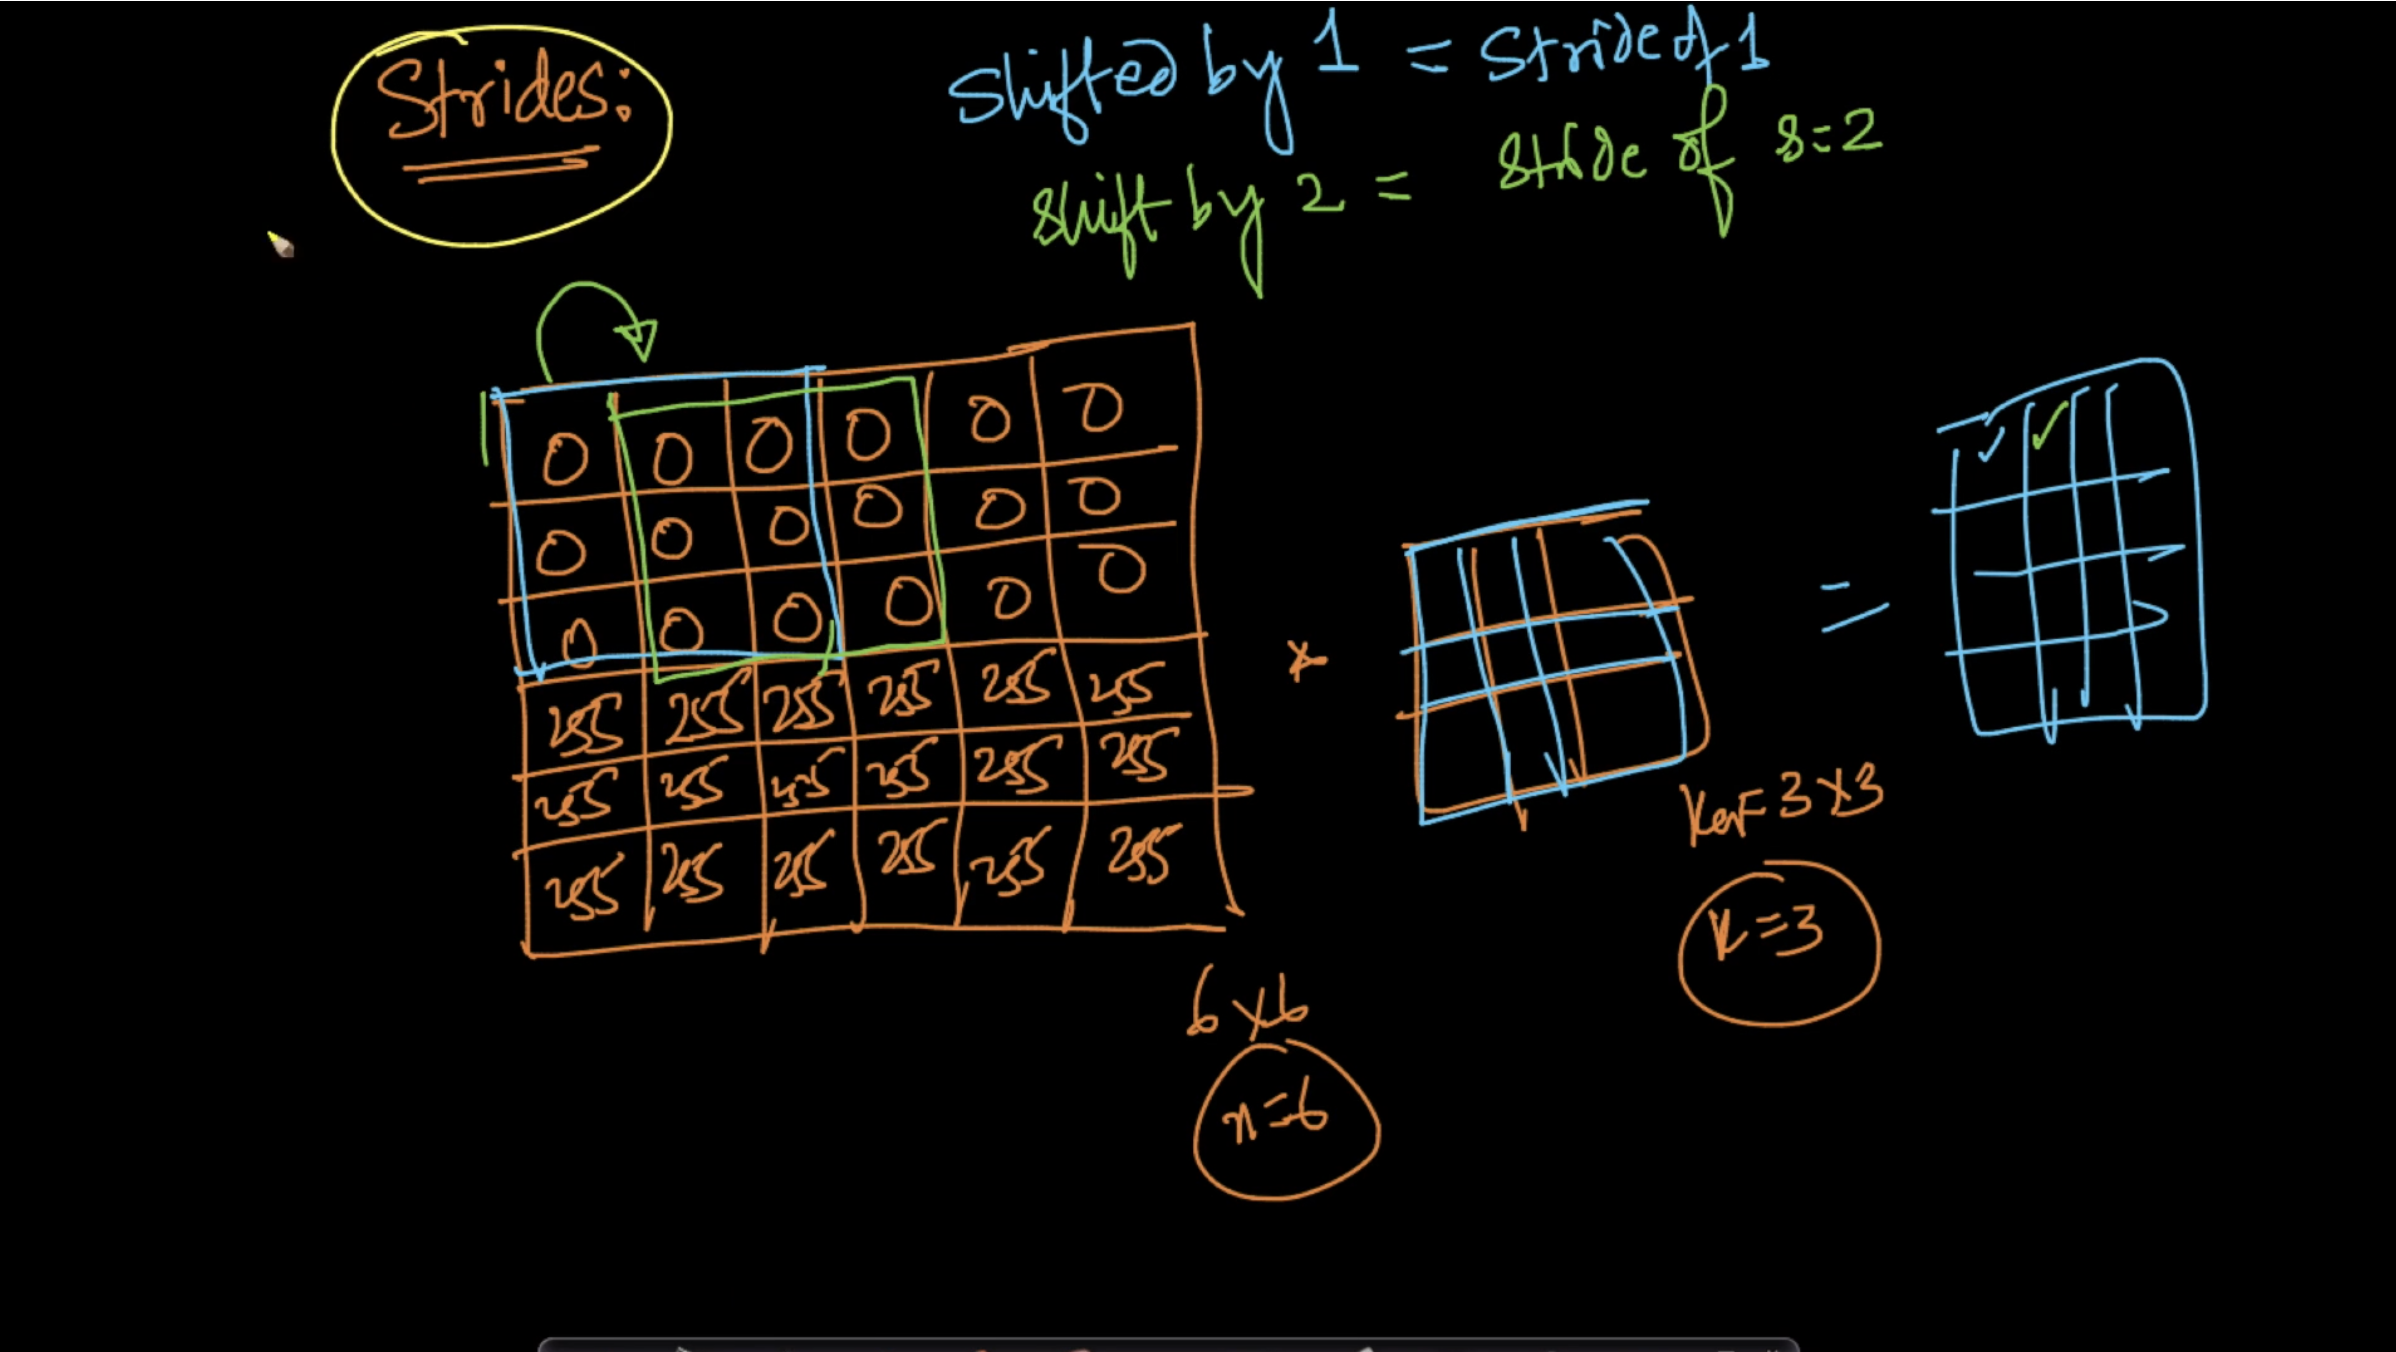 Strides:
Shifted by 1 = Stride of 1
shift by 2 = stride of s=2
0 0 0 0 0 0
0 0 0 0 0 0
0 0 0 0 0 0
255 255 255 255 255 255
255 255 255 255 255 255
255 255 255 255 255 255
*
=
Ker=3x3
K=3
6x6
n=6